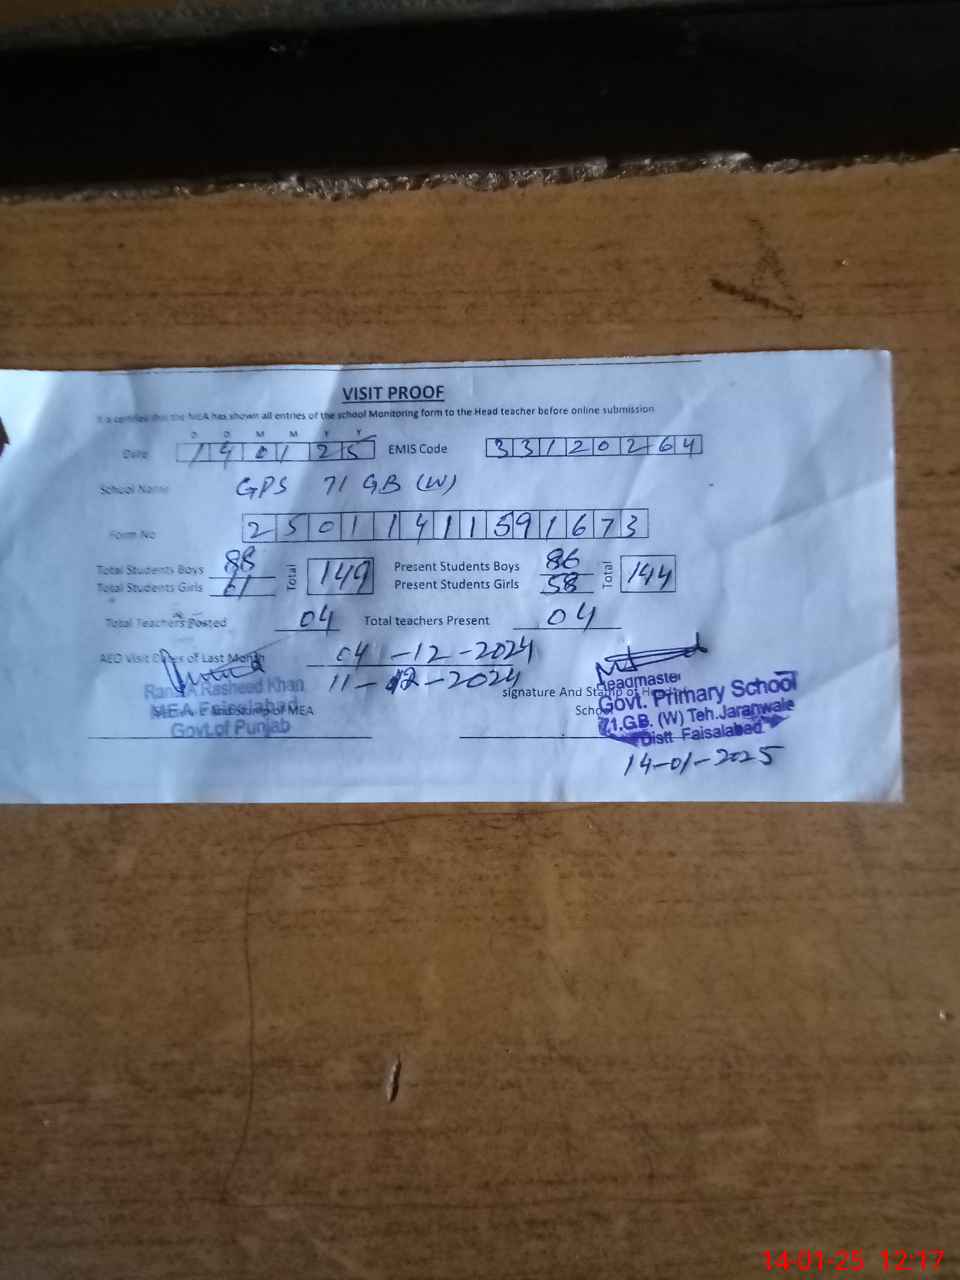 VISIT PROOF
It is certified that the MEA has shown all entries of the school Monitoring form to the Head teacher before online submission
D D M M Y Y
Date 14 01 25 EMIS Code 33120264
School Name GPS 71 GB (W)
Form No 25011411591673
Total Students Boys 88 Total 149 Present Students Boys 86 Total 144
Total Students Girls 61 Present Students Girls 58
Total Teachers Posted 04 Total teachers Present 04
AEO Visit Dates of Last Month 04-12-2024
11-12-2024
Rana A Rasheed Khan signature And Stamp of Head
MEA Faisalabad
Stamp of MEA School
Govt.of Punjab
Headmaster
Govt. Primary School
71.G.B. (W) Teh.Jaranwala
Distt Faisalabad
14-01-2025
14-01-25 12:17